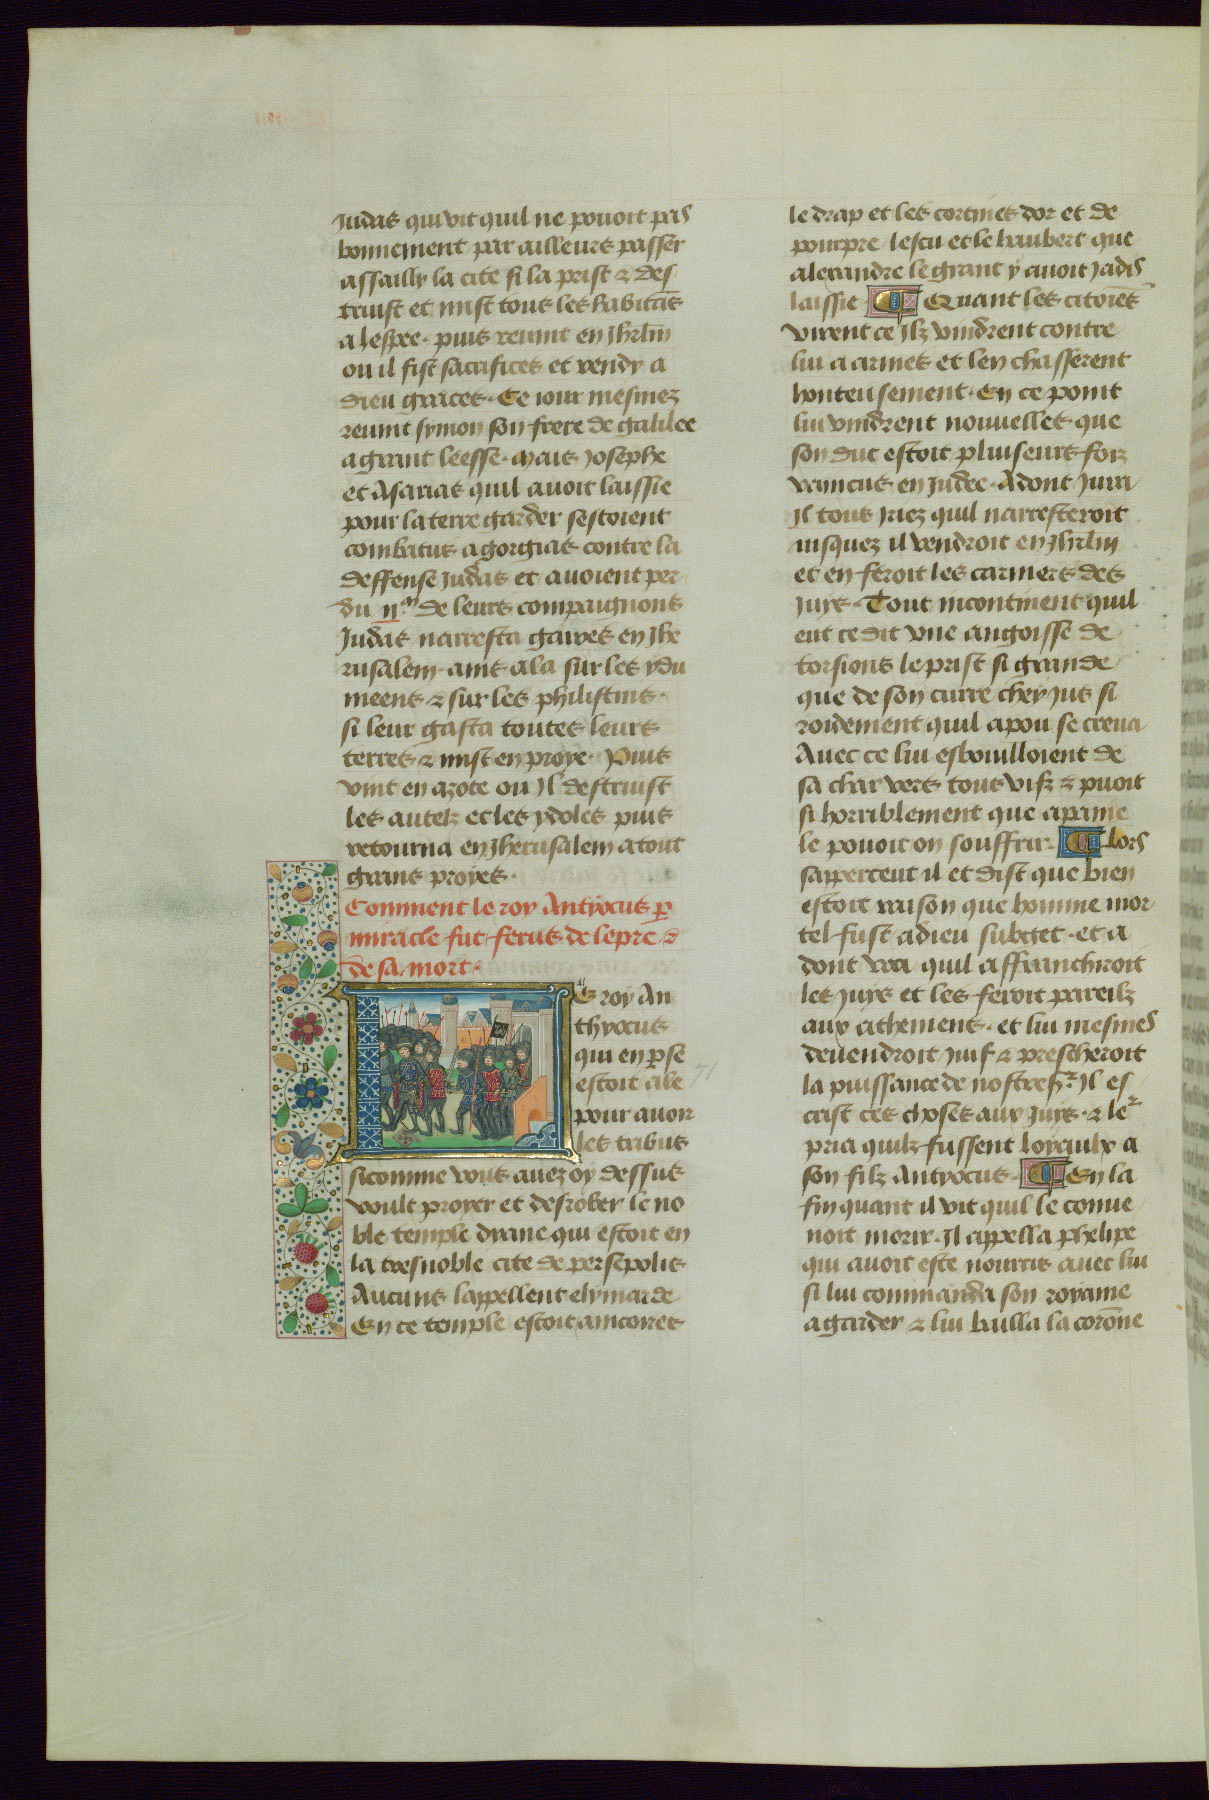 Judas qui vit quil ne pouoit pas
bonnement par ailleurs passer
assailly la cite si la prist & des
truist et mist tous les habitās
a lespee. puis reuint en Jhrlm̄
ou il fist sacrifices et rendy a
dieu graces. Ce iour mesmez
reuint symon son frere de galilee
a grant leesse. Mais Josephe
et Asarias quil auoit laissie
pour la terre garder sestoient
combatus a gorgias contre la
deffense Judas et auoient per
du ii.m de leurs compaignons
Judas narresta gaires en Jhe
rusalem. ains ala sur les ydu
meens & sur les philistins.
si leur gasta toutes leurs
terres & mist en proye. Puis
vint en azote ou Il destruist
les autelz et les ydoles puis
retourna en Jherusalem atout
grans proyes.
Comment le roy Antyocus p̄
miracle fut ferus de lepre. &
de sa mort.
LE roy An
thyocus
qui en p̄se
estoit ale
pour auoir
les tribus
sicomme vous auez oy dessus
voult proyer et desrober le no
ble temple dyane qui estoit en
la tresnoble cite de persepolis.
Aucuns lappellent elymarde.
En ce temple estoit aincores
le drap et les cortines dor et de
pourpre. lescu et le haubert que
alexandre le grant y auoit Jadis
laissie. Quant les citoiēs
virent ce Ilz vindrent contre
lui a armes et len chasserent
honteusement. En ce point
lui vindrent nouuelles que
son duc estoit pluiseurs fois
vaincus en Judee. Adont Jura
Il tous Jriez quil narresteroit
iusquez il vendroit en Jhrlm̄
et en feroit les carniers des
Juifs. Tout incontinent quil
eut ce dit vne angoisse de
torsions le prist si grande
que de son curre chey jus si
roidement quil a pou se creua
Auec ce lui esbouilloient de
sa char vers tous vifz & puoit
si horriblement que a paine
le pouoit on souffrir. Alors
sappercеut il et dist que bien
estoit raison que homme mor
tel fust a dieu subget. et a
dont voa quil affranchiroit
les Juifs et les feroit pareilz
aux atheniens. et lui mesmes
deuendroit Juif & prescheroit
la puissance de nostre sr. Il es
cript ces choses aux Juifs. & ler
pria quilz fussent loyaulx a
son filz Antyocus. En la
fin quant il vit quil le conue
noit morir. Il appella phelipe
qui auoit este nourris auec lui
si lui commanda son royame
a garder & lui bailla la corōne